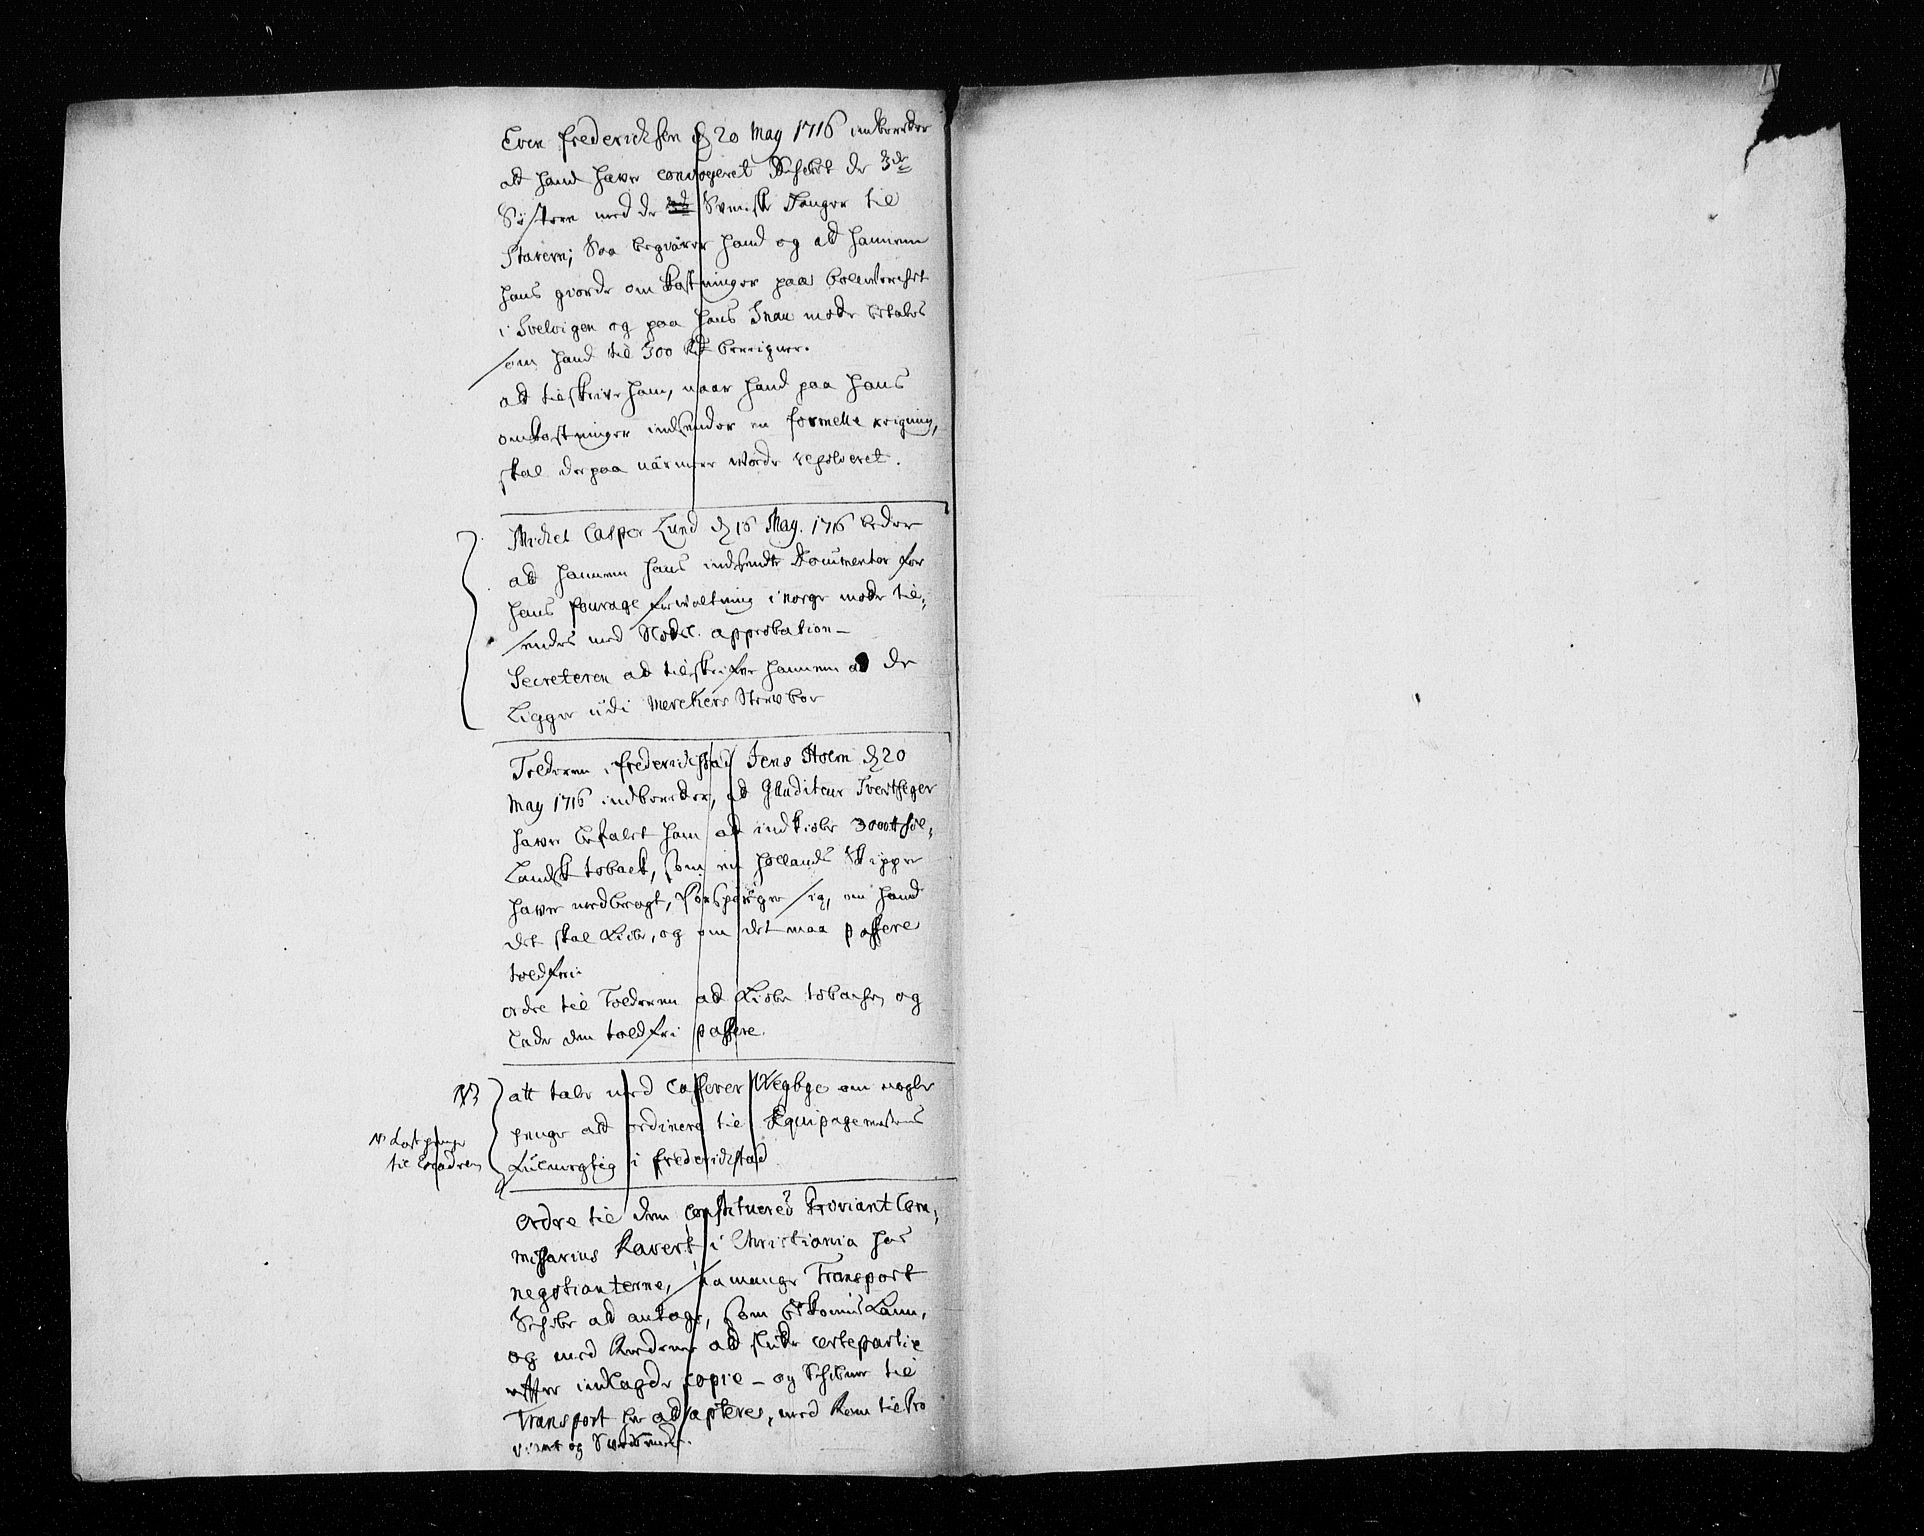 Even Frederichsen d 20 May 1716 indbereder
at hand haver convojeret Schibet de 3de
Søstre med de Svenske Fanger til
Stavern; Saa begiärer hand og at hannem
hans giorde omkostninger paa bolwercket
i Svelvigen og paa hans Snau motte betales
som hand til 300 Rdr bereigner.
at tilskrive ham, naar hand paa hans
omkostninger indsender en formelle reigning,
skal derpaa närmere worde resolveret.
Michel Casper Lund d 16 May. 1716 beder
at hannem hans indsendte Documenter for
hans fourage forvaltning i Norge motte til-
sendes med approbation
Secreteren at tilskrifve hannem at de
Ligger udi Merckers
Tolderen i Friderichstad Jens Holm d 20
May 1716 indbereder, at GAuditeur Svertfeger
haver befalet ham at indkiøbe 3000 tt hol-
Landsk toback, som en hollands Skipper
haver medbragt, forspørger sig, om hand
det skal kiøbe, og om det maa passere
toldfri
ordre til Tolderen at kiøbe tobachen og
Lade den toldfri passere.
NB
att tale med Casserer Wegbye om nogle
penge at ordinere til Equipagemesterens
fulmegtig i Frederichstad
Nb Kostpenge
til Esqadren
ordre til den constituered Proviant Com-
missarius Ravert i Christiania hos
negotianterne, saa mange Transport
Schibe at antage, som bekommis kann,
og med Rederne at slutte certepartie
efter indlagde copie - og Schibene til
Transport at aptere, med Rom til Pro
viant og